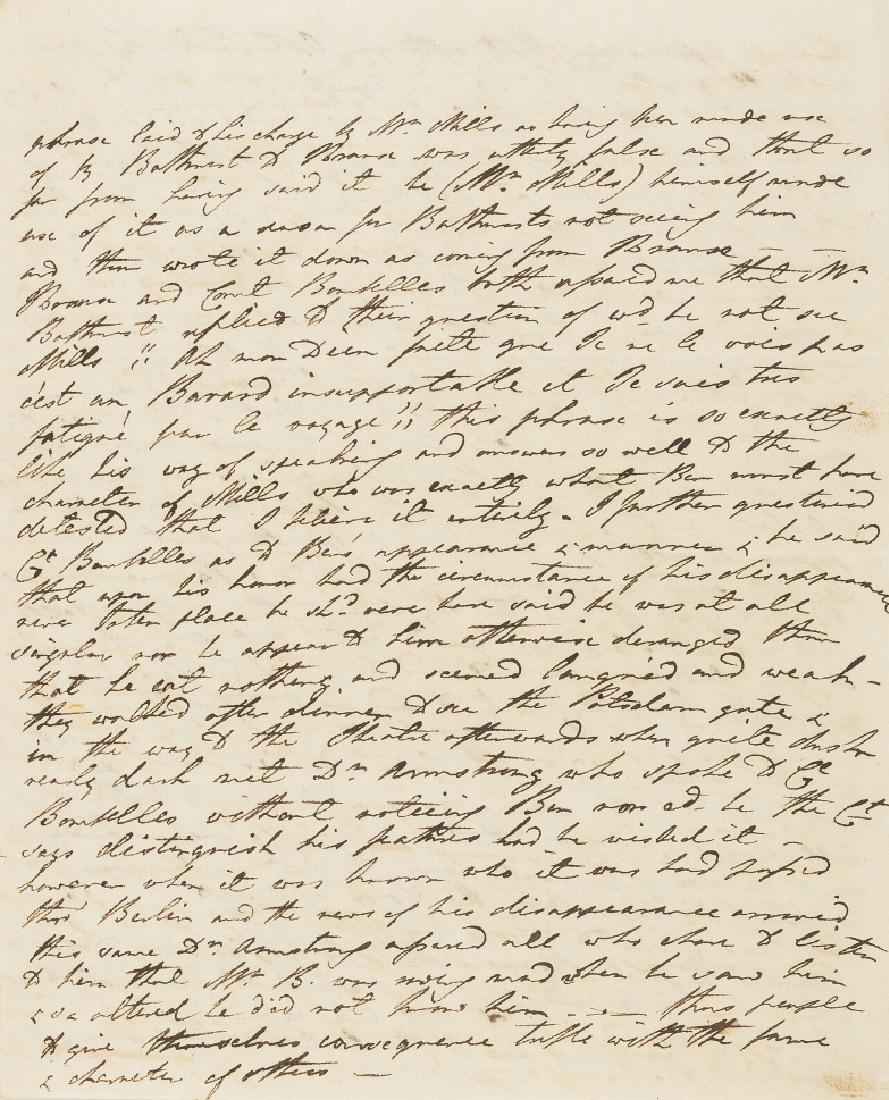 phrase laid to his charge by Mr. Mills as having been made use
of by Bathurst to Bramer was utterly false and that so
far from having said it he (Mr. Mills) himself made
use of it as a reason for Bathursts not seeing him
and then wrote it down as coming from — —
and Count Bombelles both assured me that Mr.
Bathurst replied to their question of wd. he not see
Mills "Ah mon Dieu que Je ne le vois pas
c'est un Bavard insupportable et Je suis tres
fatigué par le voyage" this phrase is so exactly
like his way of speaking and answers so well to the
character of Mills who was exactly what Ben must have
detested that I believe it entirely. I further questioned
Ct. Bombelles as to Ben's appearance & manner & he said
that upon his honor had the circumstance of his disappearance
never taken place he shd. never have said he was at all
singular nor he appeard to him otherwise deranged than
that he eat nothing and seemed languid and weak —
they walked after dinner to see the Potsdam gate &
in the way to the Theatre afterwards when quite dusk or
nearly dark met Dr. Armstrong who spoke to Ct.
Bombelles without noticing Ben nor cd. he the Ct.
says distinguish his features had he wished it —
however when it was known who it was had passed
thro' Berlin and the news of his disappearance arrived
this same Dr. Armstrong assured all who chose to listen
to him that Mr. B. was mad when he saw him
& so altered he did not know him — — thus people
to give themselves consequence trifle with the fame
& character of others —